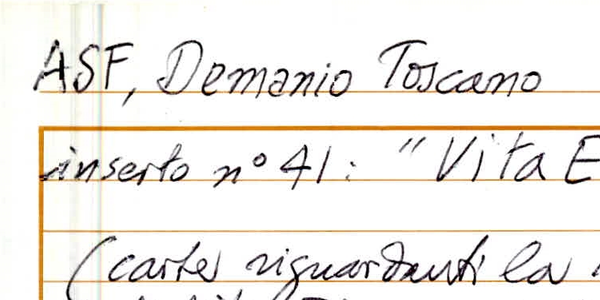 ASF, Demanio Toscano
inserto n° 41: "Vita E
(carte riguardanti la